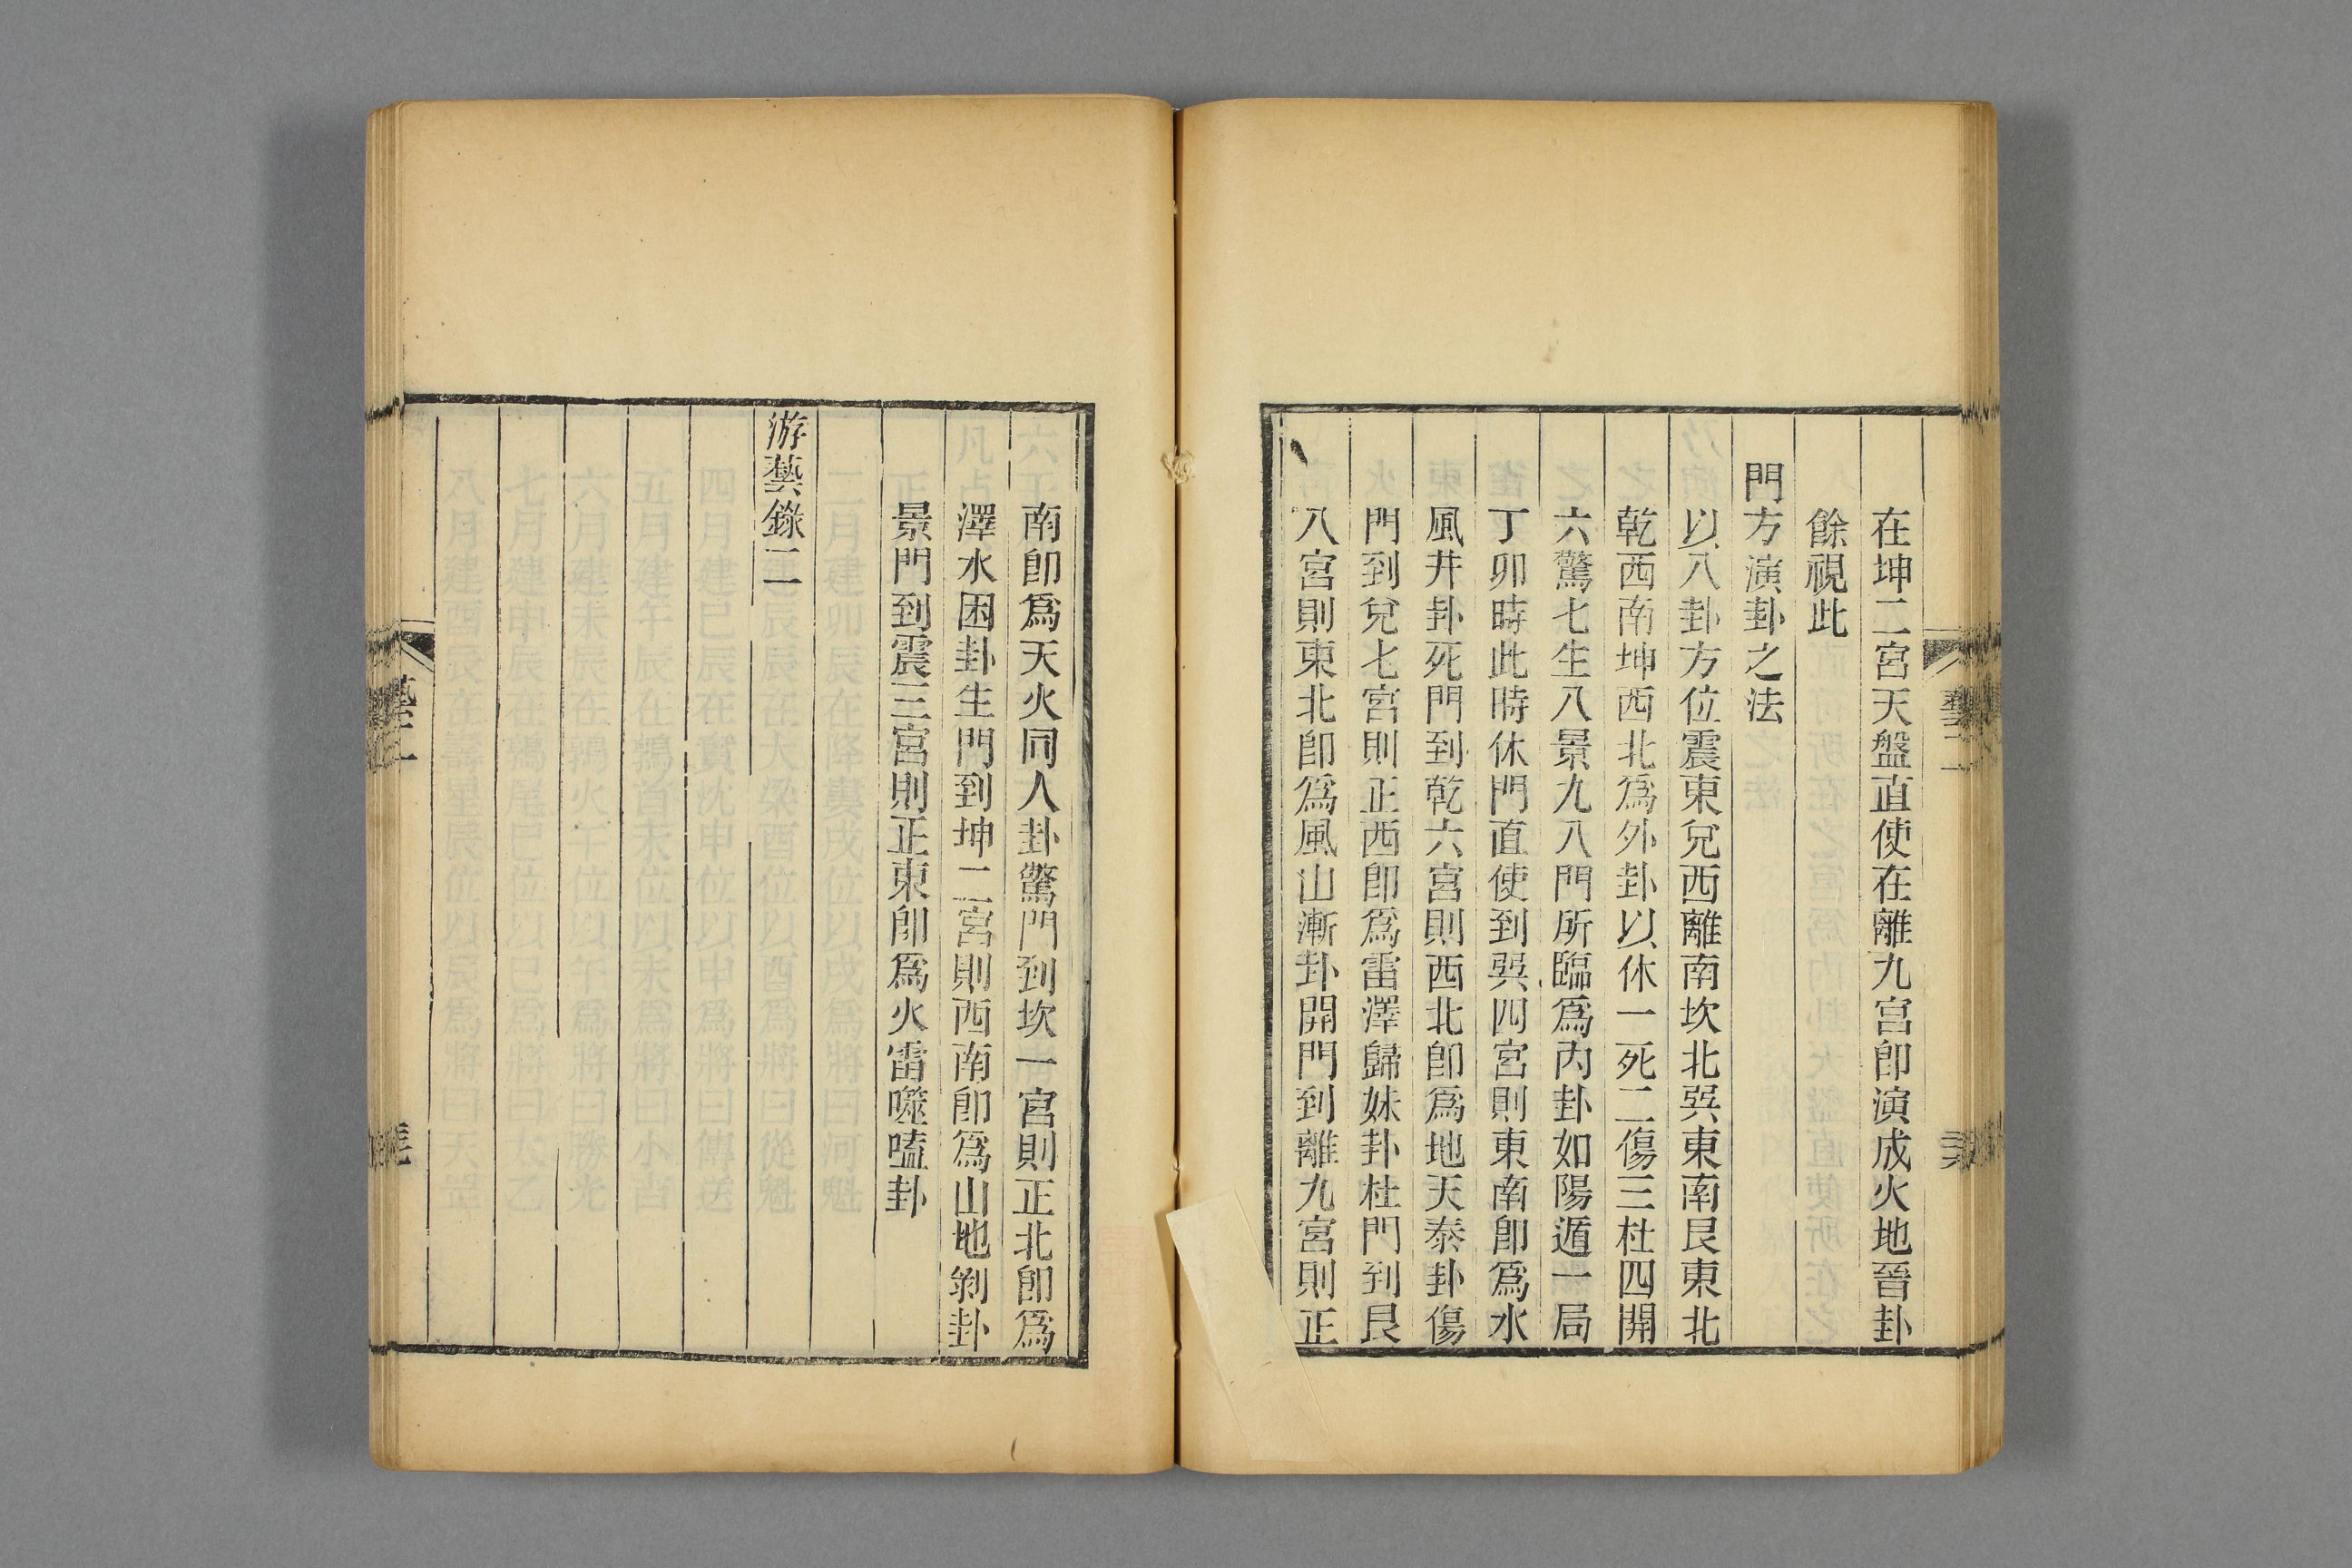 在坤二宮天盤直使在離九宮卽演成火地晉卦
餘視此
門方演卦之法
以八卦方位震東兌西離南坎北巽東南艮東北
乾西南坤西北為外卦以休一死二傷三杜四開
六驚七生八景九八門所臨為內卦如陽遁一局
丁卯時此時休門直使到巽四宮則東南卽為水
風井卦死門到乾六宮則西北卽為地天泰卦傷
門到兌七宮則正西卽為雷澤歸妹卦杜門到艮
八宮則東北卽為風山漸卦開門到離九宮則正
南卽為天火同人卦驚門到坎一宮則正北卽為
澤水困卦生門到坤二宮則西南卽為山地剝卦
景門到震三宮則正東卽為火雷噬嗑卦
游藝錄二